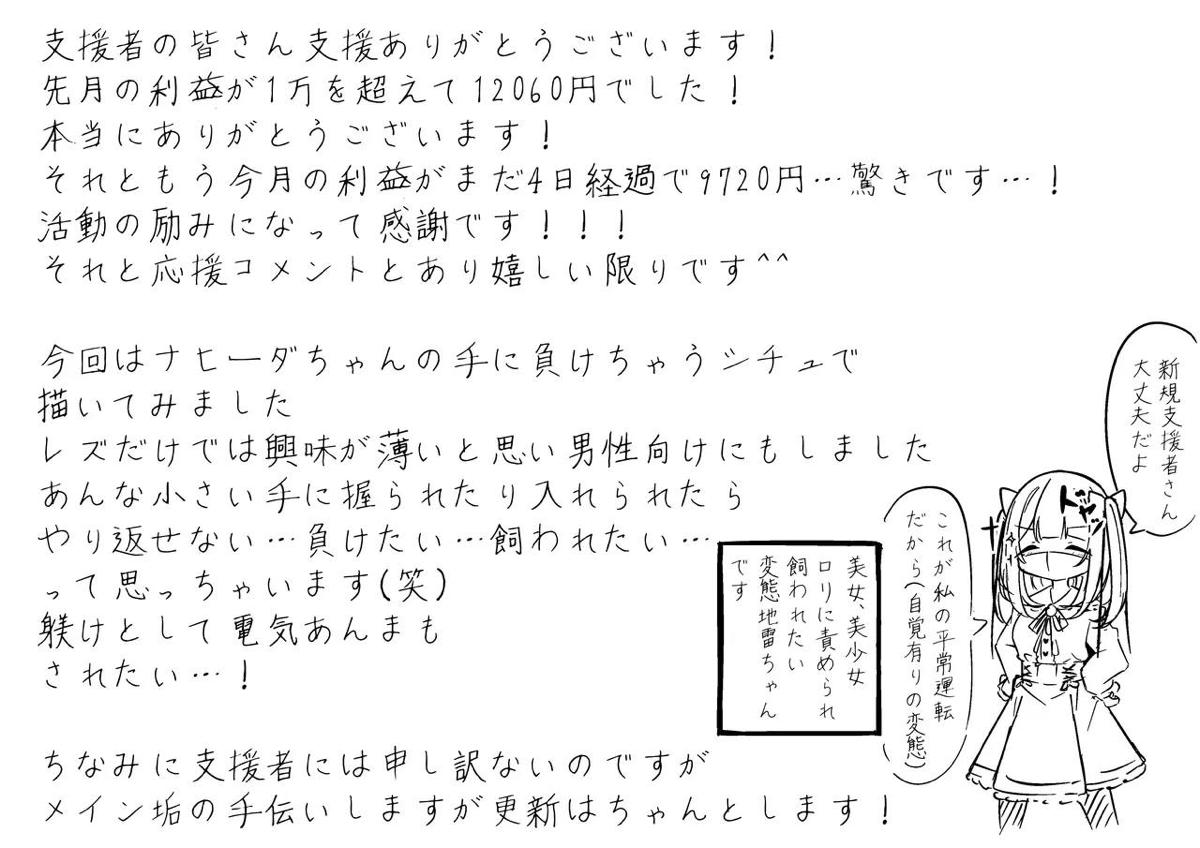 支援者の皆さん支援ありがとうございます!
先月の利益が1万を超えて12060円でした!
本当にありがとうございます!
それともう今月の利益がまだ4日経過で9720円…驚きです…!
活動の励みになって感謝です!!!
それと応援コメントとあり嬉しい限りです^^
今回はナヒーダちゃんの手に負けちゃうシチュで
描いてみました
レズだけでは興味が薄いと思い男性向けにもしました
あんな小さい手に握られたり入れられたら
やり返せない…負けたい…飼われたい…
って思っちゃいます(笑)
躾けとして電気あんまも
されたい…!
ちなみに支援者には申し訳ないのですが
メイン垢の手伝いしますが更新はちゃんとします!
新規支援者さん
大丈夫だよ
ドヤッ
これが私の平常運転
だから(自覚有りの変態)
美女、美少女
ロリに責められ
飼われたい
変態地雷ちゃん
です